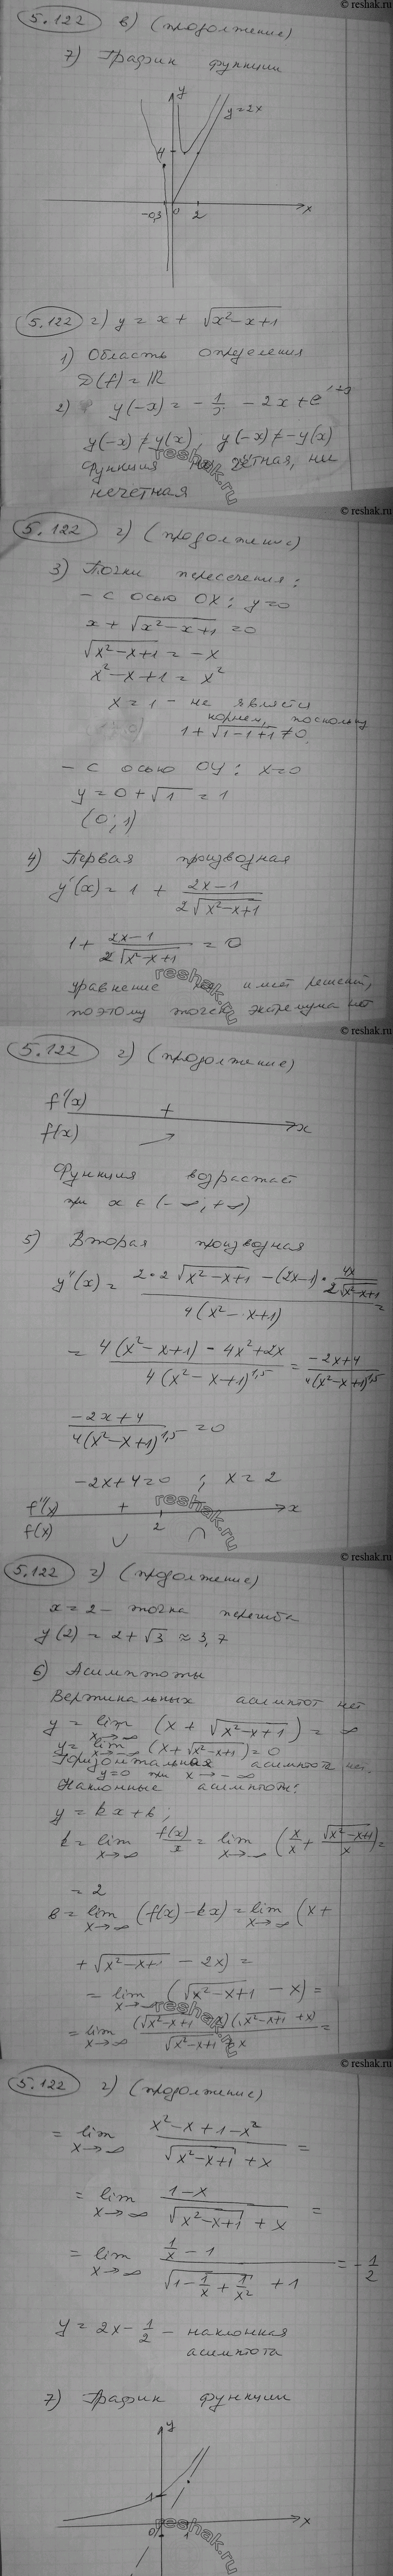 © reshak.ru
5.122 в) (продолжение)
7) График функции
y
y=2x
4
-0,3 0 2 x
5.122 г) y = x + √(x²-x+1)
1) Область определения
D(f) = ℝ
y(-x) ≠ y(x), y(-x) ≠ -y(x)
функция четная, ни
нечетная
reshak.ru
© reshak.ru
5.122 г) (продолжение)
3) Точки пересечения:
- с осью OX: y=0
x + √(x²-x+1) = 0
√(x²-x+1) = -x
x²-x+1 = x²
x = 1 - не является
корнем, поскольку
1+√(1-1+1) ≠ 0
- с осью OY: x=0
y = 0 + √1 = 1
(0; 1)
4) Первая производная
y'(x) = 1 + (2x-1)/(2√(x²-x+1))
1 + (2x-1)/(2√(x²-x+1)) = 0
уравнение имеет решений,
поэтому точек экстремума нет
reshak.ru
© reshak.ru
5.122 г) (продолжение)
f'(x) + x
f(x)
Функция возрастает
при x ∈ (-∞; +∞)
5) Вторая производная
y''(x) = (2·2√(x²-x+1) - (2x-1)·4x/(2√(x²-x+1)))/(4(x²-x+1)) =
= (4(x²-x+1) - 4x²+2x)/(4(x²-x+1)^1,5) = (-2x+4)/(4(x²-x+1)^1,5)
(-2x+4)/(4(x²-x+1)^1,5) = 0
-2x+4=0 ; x = 2
f''(x) + 2 - x
f(x) ∪ ∩
reshak.ru
© reshak.ru
5.122 г) (продолжение)
x = 2 - точка перегиба
y(2) = 2+√3 ≈ 3,7
6) Асимптоты
Вертикальных асимптот нет
y = lim x→∞ (x + √(x²-x+1)) = ∞
y = lim x→-∞ (x+√(x²-x+1)) = 0
Горизонтальная асимптота
y=0 при x→-∞
Наклонные асимптоты:
y = kx+b;
k = lim x→∞ f(x)/x = lim x→∞ (x/x + √(x²-x+1)/x) =
= 2
b = lim x→∞ (f(x)-kx) = lim x→∞ (x+
+ √(x²-x+1) - 2x) =
= lim x→∞ (√(x²-x+1) - x) =
= lim x→∞ (√(x²-x+1) - x)(√(x²-x+1) + x)/(√(x²-x+1) + x) =
reshak.ru
© reshak.ru
5.122 г) (продолжение)
= lim x→∞ (x²-x+1-x²)/(√(x²-x+1) + x) =
= lim x→∞ (1-x)/(√(x²-x+1) + x) =
= lim x→∞ (1/x - 1)/(√(1-1/x+1/x²) + 1) = -1/2
y = 2x - 1/2 - наклонная
асимптота
7) График функции
y
1
0 1 x
reshak.ru